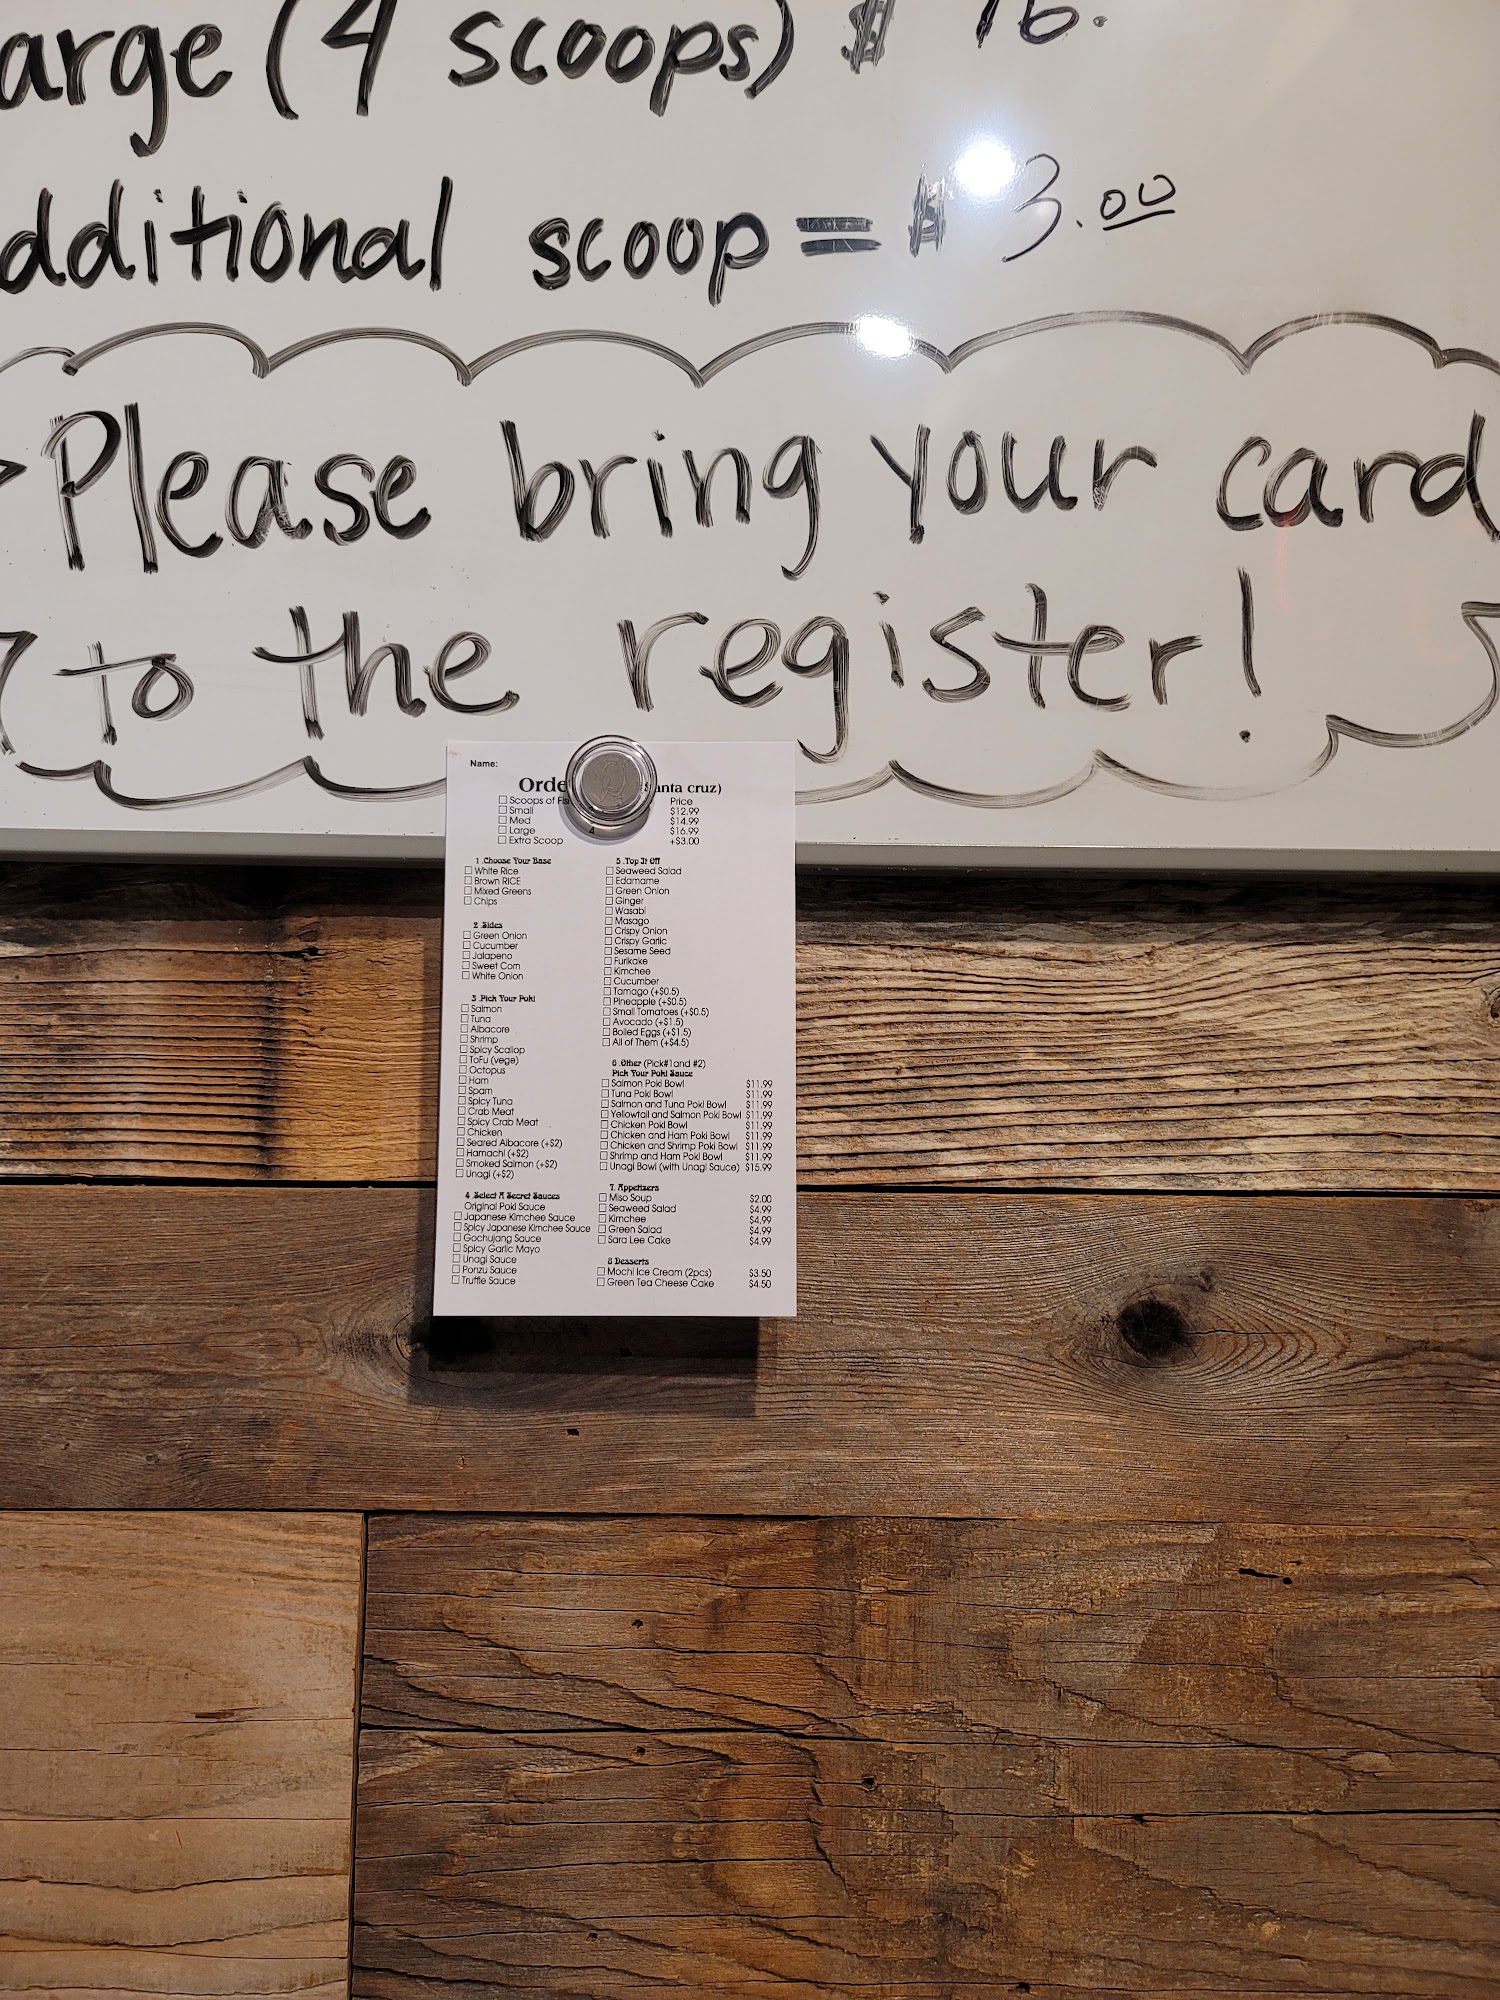 arge (4 scoops) $ 16.
dditional scoop = $ 3.00
Please bring your card
to the register!
Name:
Orde anta cruz)
Scoops of Price
Small $12.99
Med $14.99
Large 4 $16.99
Extra Scoop +$3.00
1 .Choose Your Base
White Rice
Brown RICE
Mixed Greens
Chips
2 .Sides
Green Onion
Cucumber
Jalapeno
Sweet Corn
White Onion
3 .Pick Your Poki
Salmon
Tuna
Albacore
Shrimp
Spicy Scallop
ToFu (vege)
Octopus
Ham
Spam
Spicy Tuna
Crab Meat
Spicy Crab Meat
Chicken
Seared Albacore (+$2)
Hamachi (+$2)
Smoked Salmon (+$2)
Unagi (+$2)
4 .Select A Secret Sauces
Original Poki Sauce
Japanese Kimchee Sauce
Spicy Japanese Kimchee Sauce
Gochujang Sauce
Spicy Garlic Mayo
Unagi Sauce
Ponzu Sauce
Truffle Sauce
5 .Top It Off
Seaweed Salad
Edamame
Green Onion
Ginger
Wasabi
Masago
Crispy Onion
Crispy Garlic
Sesame Seed
Furikake
Kimchee
Cucumber
Tamago (+$0.5)
Pineapple (+$0.5)
Small Tomatoes (+$0.5)
Avocado (+$1.5)
Boiled Eggs (+$1.5)
All of Them (+$4.5)
6 .Other (Pick#1and #2)
Pick Your Poki Sauce
Salmon Poki Bowl $11.99
Tuna Poki Bowl $11.99
Salmon and Tuna Poki Bowl $11.99
Yellowtail and Salmon Poki Bowl $11.99
Chicken Poki Bowl $11.99
Chicken and Ham Poki Bowl $11.99
Chicken and Shrimp Poki Bowl $11.99
Shrimp and Ham Poki Bowl $11.99
Unagi Bowl (with Unagi Sauce) $15.99
7. Appetizers
Miso Soup $2.00
Seaweed Salad $4.99
Kimchee $4.99
Green Salad $4.99
Sara Lee Cake $4.99
8 Desserts
Mochi Ice Cream (2pcs) $3.50
Green Tea Cheese Cake $4.50